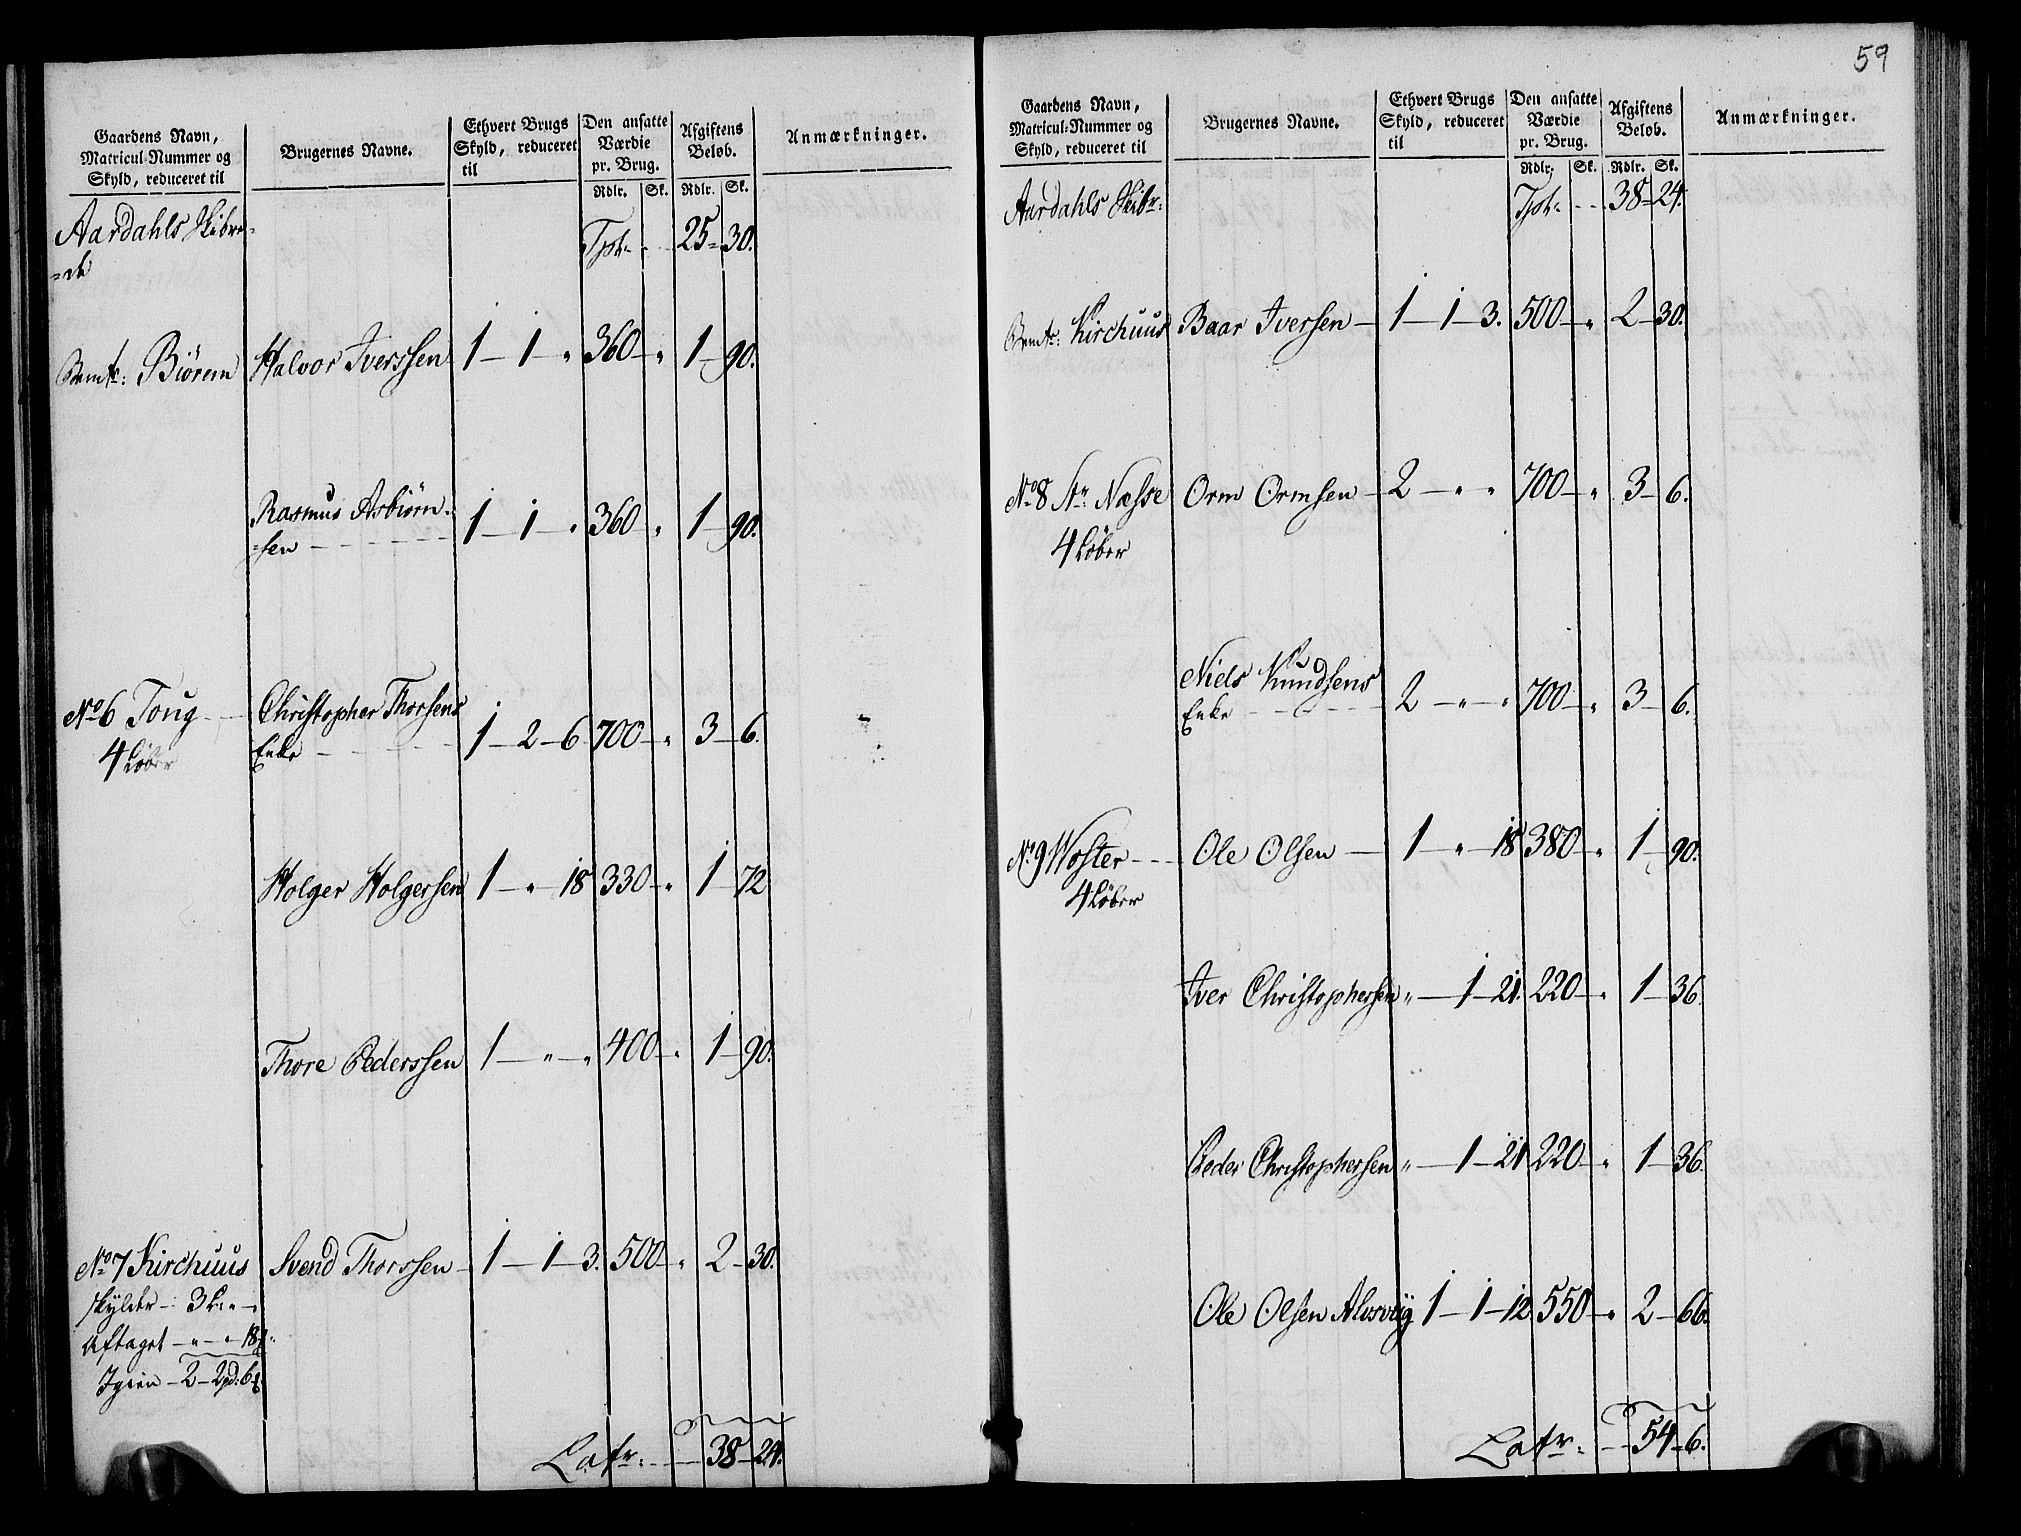 Gaardens Navn, Matricul-Nummer og Skyld, reduceret til | Brugernes Navne. | Ethvert Brugs Skyld, reduceret til | Den ansatte Værdie pr. Brug. | Afgiftens Beløb. | Anmærkninger.
Rdlr. Sk. Rdlr. Sk.
Aardahls Skibre= Tpt- 25= 30.
=de
Biørem Halvor Iverssen 1 — 1 „ 360 „ 1 — 90.
Rasmus Asbiørn=
=sen 1 — 1 „ 360 „ 1 — 90.
No 6 Toug Christopher Thorsens
4 Løber Enke 1 — 2 — 6 700 „ 3 — 6.
Holger Holgersen 1 — „ — 18 330 „ 1 — 72
Thore Pederssen 1 — „ — „ 400 „ 1 — 90.
No 7 Kirchuus Svend Thorssen 1 — 1 — 3. 500 „ 2 — 30.
skylder — 3 L: „ —
Aftaget — „ — „ — 18
Igien — 2 — 2pd: 6
Latr. 38 — 24.
59
Gaardens Navn, Matricul-Nummer og Skyld, reduceret til | Brugernes Navne. | Ethvert Brugs Skyld, reduceret til | Den ansatte Værdie pr. Brug. | Afgiftens Beløb. | Anmærkninger.
Rdlr. Sk. Rdlr. Sk.
Aardahls Skibr: Tpt- 38 — 24.
Kirchuus Baar Iversen 1 — 1 — 3. 500 „ 2 — 30.
No 8 Nr. Næsse Orm Ormsen 2 — „ „ 700 „ 3 — 6.
4 Løber
Niels Knudsens
Enke 2 — „ — „ 700 „ 3 — 6.
No 9 Woster Ole Olsen 1 — „ — 18 380 „ 1 — 90.
4 Løber
Iver Christophersen „ — 1 — 21. 220 „ 1 — 36
Peder Christophersen „ — 1 — 21 220 „ 1 — 36.
Ole Olsen Alvsvÿg 1 — 1 — 12 550 „ 2 — 66.
Latr. 54 — 6.